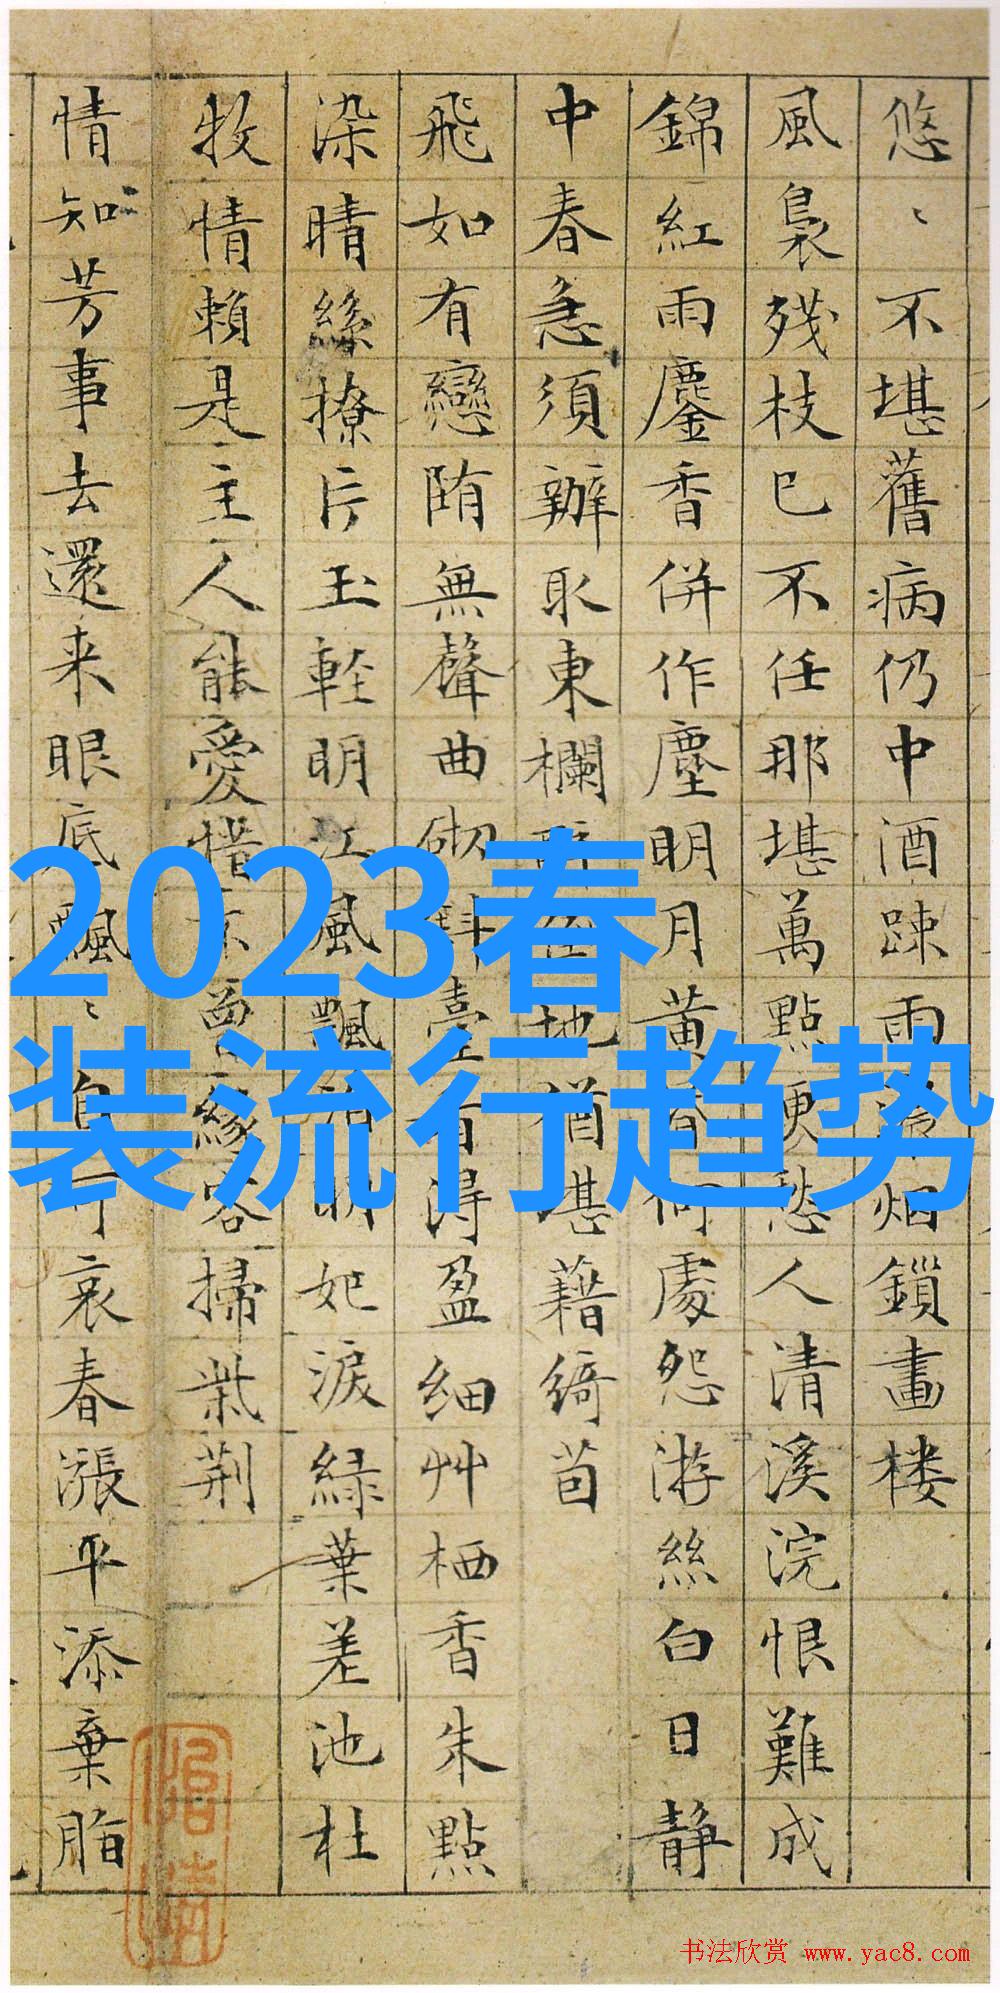 悠〻不堪舊病仍中酒踈雨烟鎖畫楼
風裊残枝已不任那堪萬點更愁人清溪浣恨難成
錦紅雨鏖香併作塵明月黄何處怨游絲白日静
中春急須辦取東欄地猶堪藉綺茵
飛如有戀墮無聲曲砌臺看得盈細艸栖香朱點
染晴絲撩片玉輕明江風飄泊明妃淚緑葉差池杜
牧情賴是主人能愛惜緣客掃柴荆
情知芳事去還来眼底飄〻自可哀春漲平添棄脂
2023春
装流行趋势
书法欣赏 www.yac8.com